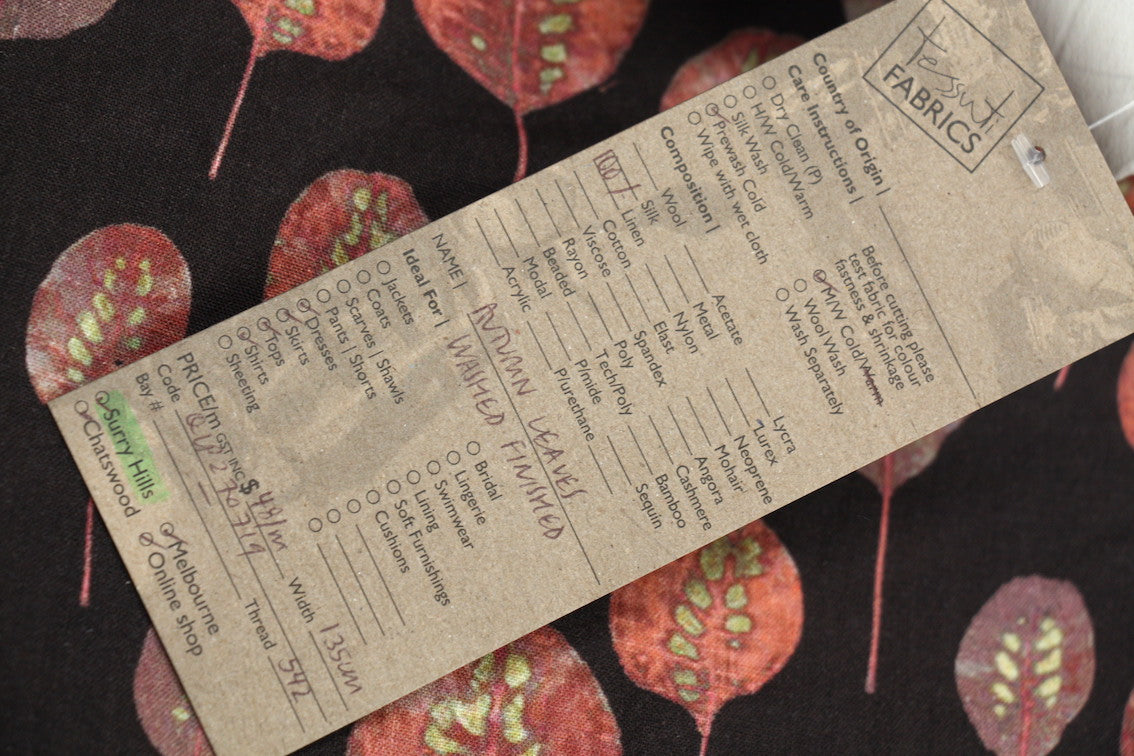 tessuti
FABRICS
Country of Origin |
Care Instructions |
Dry Clean (P)
H/W Cold/Warm
Silk Wash
Prewash Cold
Wipe with wet cloth
Before cutting please
test fabric for colour
fastness & shrinkage
M/W Cold/Warm
Wool Wash
Wash Separately
Composition |
Wool
Silk
100% Linen
Cotton
Viscose
Rayon
Beaded
Modal
Acrylic
Acetate
Metal
Nylon
Elast
Spandex
Poly
Tech/Poly
P/mide
P/urethane
Lycra
Lurex
Neoprene
Mohair
Angora
Cashmere
Bamboo
Sequin
NAME | AUTUMN LEAVES
WASHED FINISHED
Ideal For |
Jackets
Coats
Scarves | Shawls
Pants | Shorts
Dresses
Skirts
Tops
Shirts
Sheeting
Bridal
Lingerie
Swimwear
Lining
Soft Furnishings
Cushions
PRICE/m GST INC $ 49/m
Width 135cm
Code
Thread 542
Bay #
Surry Hills
Chatswood
Melbourne
Online shop